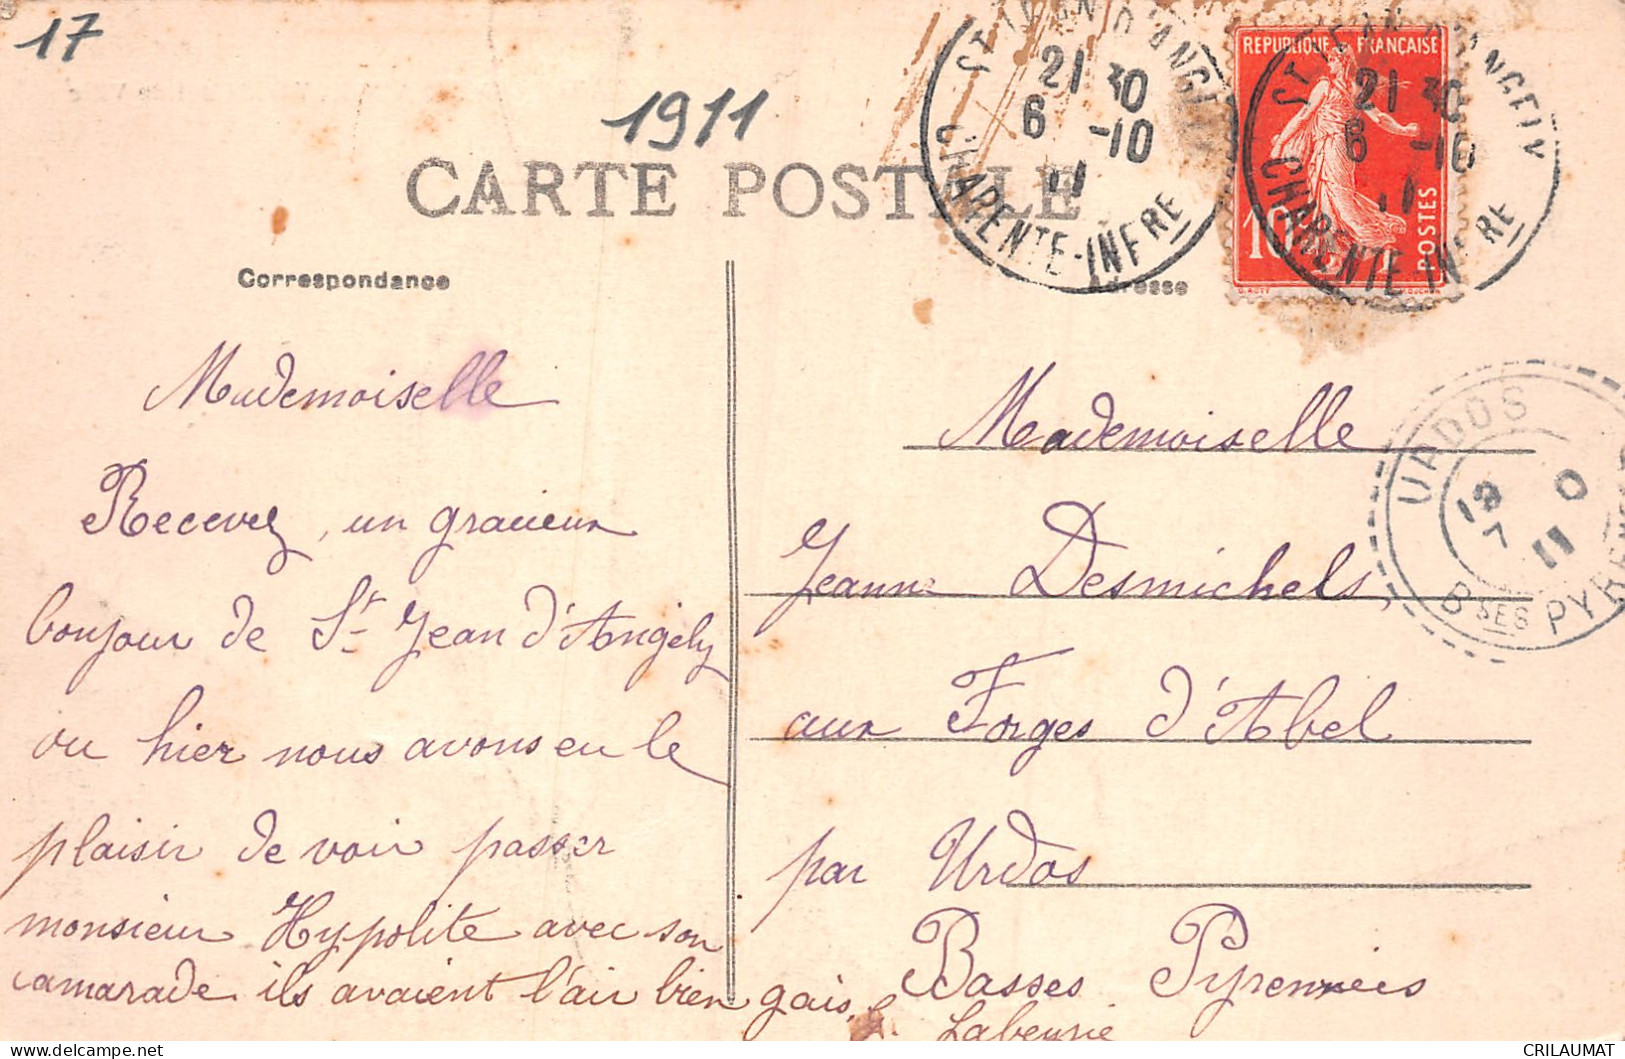 17
1911
CARTE POSTALE
ST JEAN D'ANGELY
21 30
6 -10
11
CHARENTE-INFRE
REPUBLIQUE FRANÇAISE
10
POSTES
ST JEAN D'ANGELY
21 30
6 -10
11
CHARENTE-INFRE
Correspondance
Adresse
Mademoiselle
Recevez, un gracieux
bonjour de St Jean d'Angély
ou hier nous avons eu le
plaisir de voir passer
monsieur Hypolite avec son
camarade ils avaient l'air bien gais.
Labeyrie
Mademoiselle
Jeanne Desmichels,
aux Forges d'Abel
par Urdos
Basses Pyrennées
URDOS
7
11
BSES PYREN
CRILAUMAT